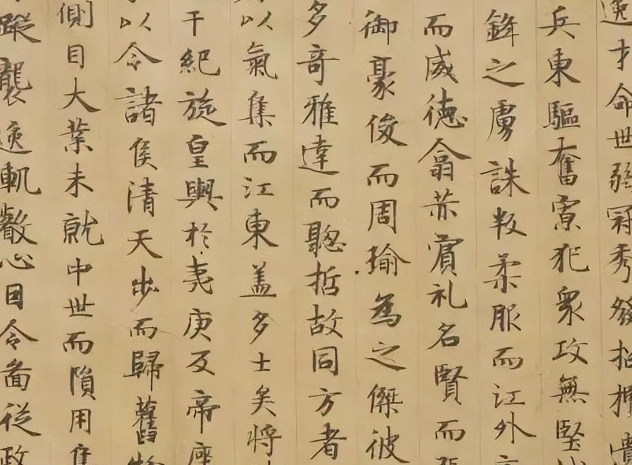 逸才命世弱冠秀發招攬遺
兵東驅奮寡犯衆攻無堅
鋒之虜誅叛柔服而江外
而威德翕赫賓礼名賢而張
御豪俊而周瑜為之傑彼
多奇雅達而聰哲故同方者
以氣集而江東盖多士矣將
干紀旋皇輿於夷庚反帝座
以令諸侯清天步而歸舊物
側目大業未就中世而隕用集
蹤襲逸軌叡心因令啚從政